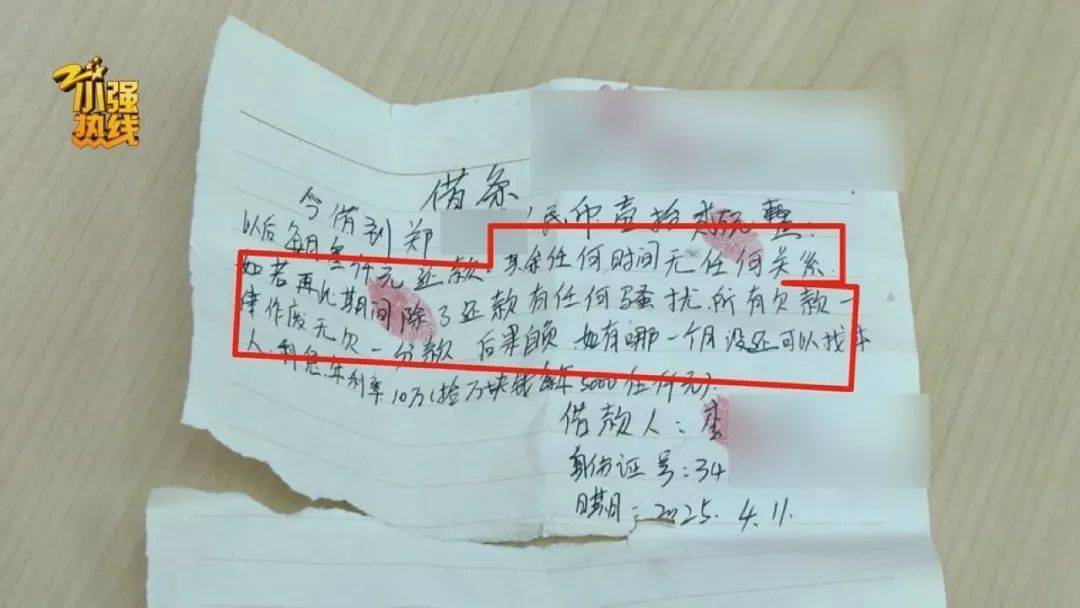 小强
热线
借条
今借到郑 民币壹拾 万元整.
以后每月叁仟元还款.其余任何时间无任何关系.
如若再此期间除了还款有任何骚扰.所有欠款一
律作废无欠一分款 后果自负 如有哪一个月没还可以找本
人.利息.年利率10万(拾万块钱每年5000伍仟元).
借款人:李
身份证号:34
日期:2025.4.11.